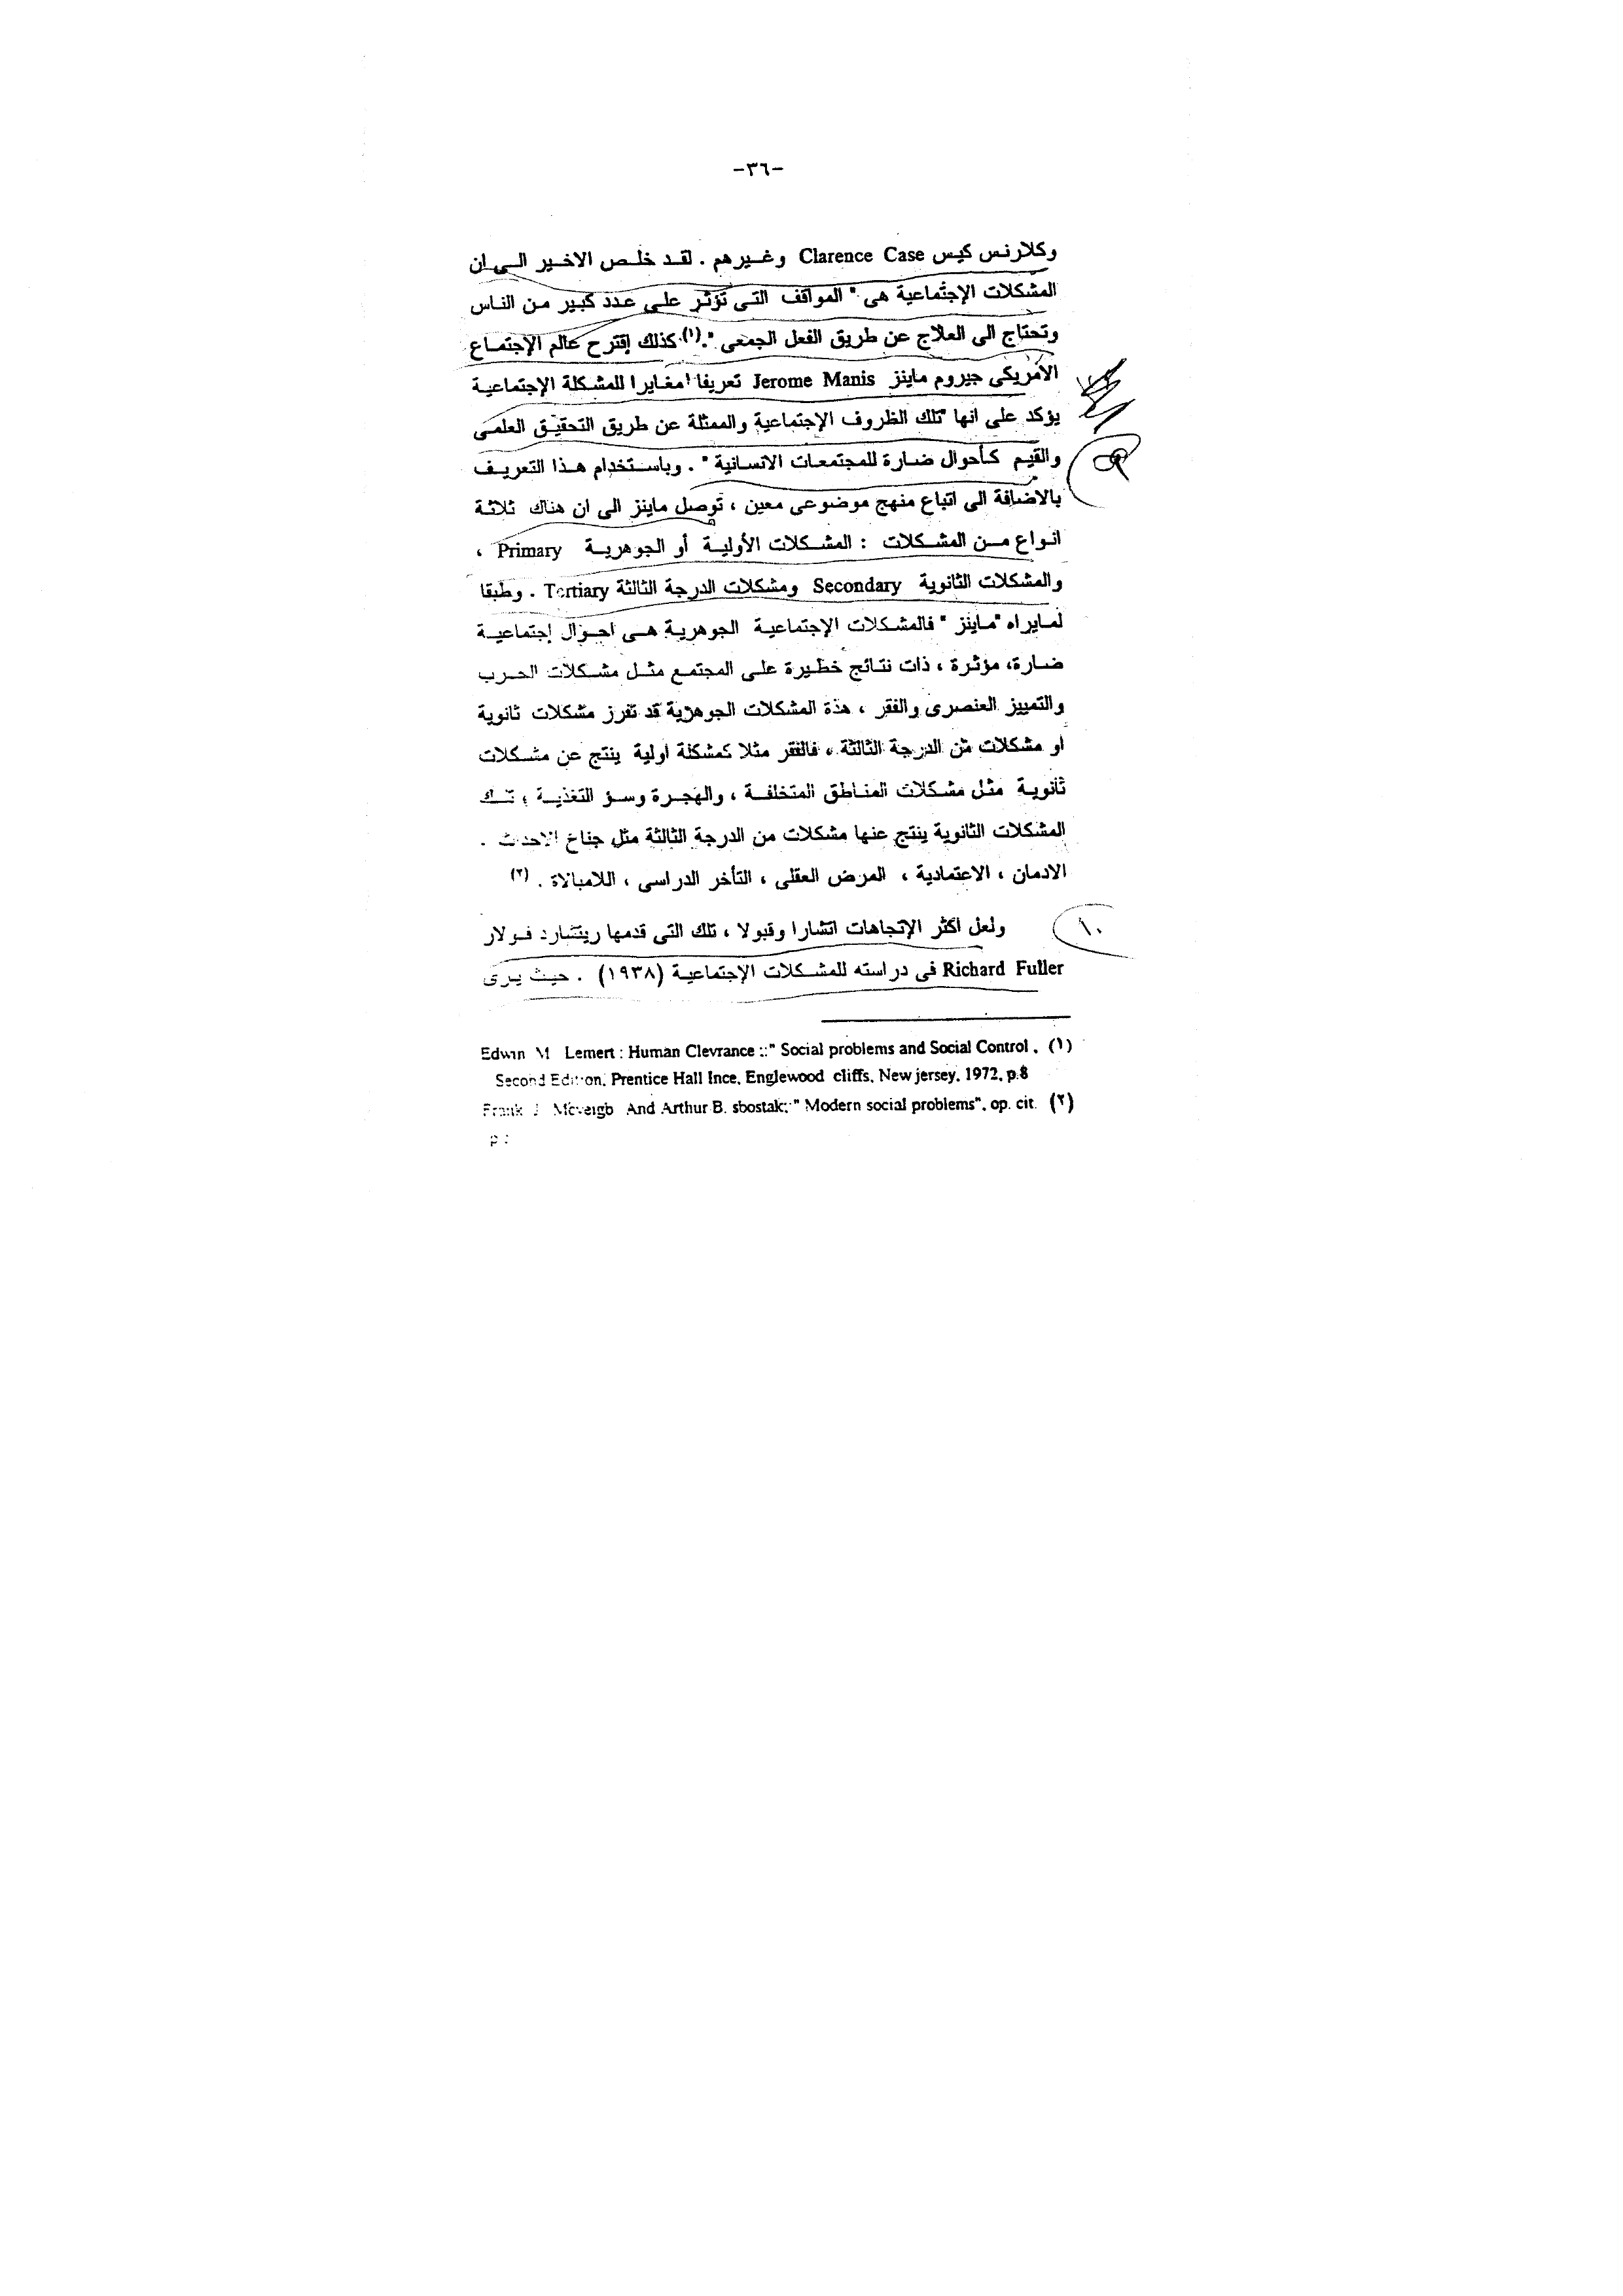 -٣٦-
وكلارنس كيس Clarence Case وغيرهم . لقد خلص الاخير الى ان
المشكلات الإجتماعية هى " المواقف التى تؤثر على عدد كبير من الناس
وتحتاج الى العلاج عن طريق الفعل الجمعى ".(١) كذلك إقترح عالم الإجتماع
الأمريكى جيروم ماينز Jerome Manis تعريفا مغايرا للمشكلة الإجتماعية
يؤكد على انها "تلك الظروف الإجتماعية والممثلة عن طريق التحقيق العلمى
والقيم كأحوال ضارة للمجتمعات الانسانية " . وباستخدام هذا التعريف
بالاضافة الى اتباع منهج موضوعى معين ، توصل ماينز الى ان هناك ثلاثة
انواع من المشكلات : المشكلات الأولية أو الجوهرية Primary ،
والمشكلات الثانوية Secondary ومشكلات الدرجة الثالثة Tertiary . وطبقا
لمايراه "ماينز " فالمشكلات الإجتماعية الجوهرية هى احوال إجتماعية
ضارة، مؤثرة ، ذات نتائج خطيرة على المجتمع مثل مشكلات الحرب
والتمييز العنصرى والفقر ، هذة المشكلات الجوهرية قد تفرز مشكلات ثانوية
او مشكلات من الدرجة الثالثة ، فالفقر مثلا كمشكلة اولية ينتج عن مشكلات
ثانوية مثل مشكلات المناطق المتخلفة ، والهجرة وسؤ التغذية ؛ تلك
المشكلات الثانوية ينتج عنها مشكلات من الدرجة الثالثة مثل جناح الاحداث .
الادمان ، الاعتمادية ، المرض العقلى ، التأخر الدراسى ، اللامبالاة . (٢)
١٠
ولعل اكثر الإتجاهات اتشارا وقبولا ، تلك التى قدمها ريتشارد فولار
Richard Fuller فى دراسته للمشكلات الإجتماعية (١٩٣٨) . حيث يرى
(١) Edwin M Lemert : Human Clevrance :" Social problems and Social Control .
Second Edition. Prentice Hall Ince. Englewood cliffs. New jersey. 1972. p.8
(٢) Frank J Mcveigb And Arthur B. sbostak:" Modern social problems". op. cit.
p :